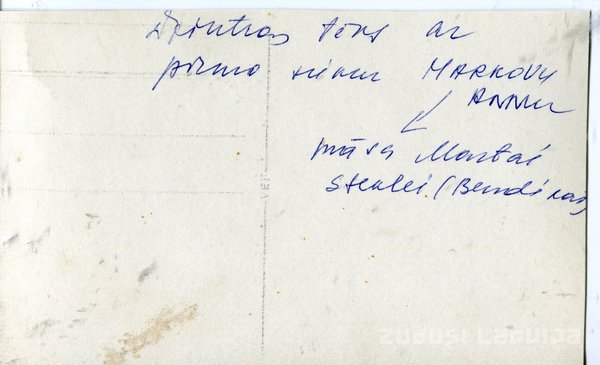 Dzintras tēvs ar
pirmo sievu MARKOVU
ANNU
māsa Martai
Stullei (Bendiņai)
zudusī Latvija